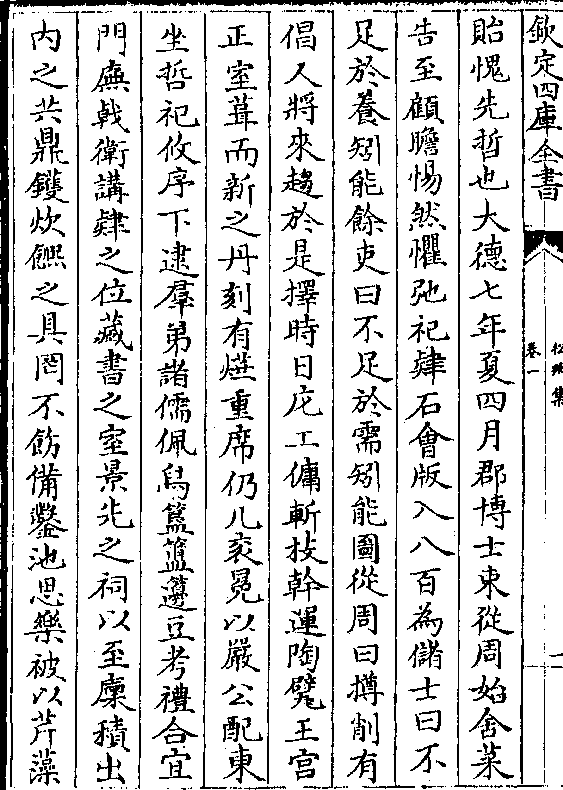 欽定四庫全書
松鄉集
卷一
貽愧先哲也大德七年夏四月郡博士東從周始舍菜
告至顧瞻惕然懼弛祀肄石會版入八百為儲士曰不
足於養矧能餘吏曰不足於需矧能圖從周曰撙削有
倡人將來趨於是擇時日庀工傭斬枚幹運陶甓王宫
正室葺而新之丹刻有嚴重席仍几衮冕以嚴公配東
坐哲祀攸序下逮羣弟諸儒佩舄簠簋籩豆考禮合宜
門廡㦸衛講肄之位藏書之室景先之祠以至廩積出
内之共鼎鑊炊饎之具罔不飭備鑿池思樂被以芹藻